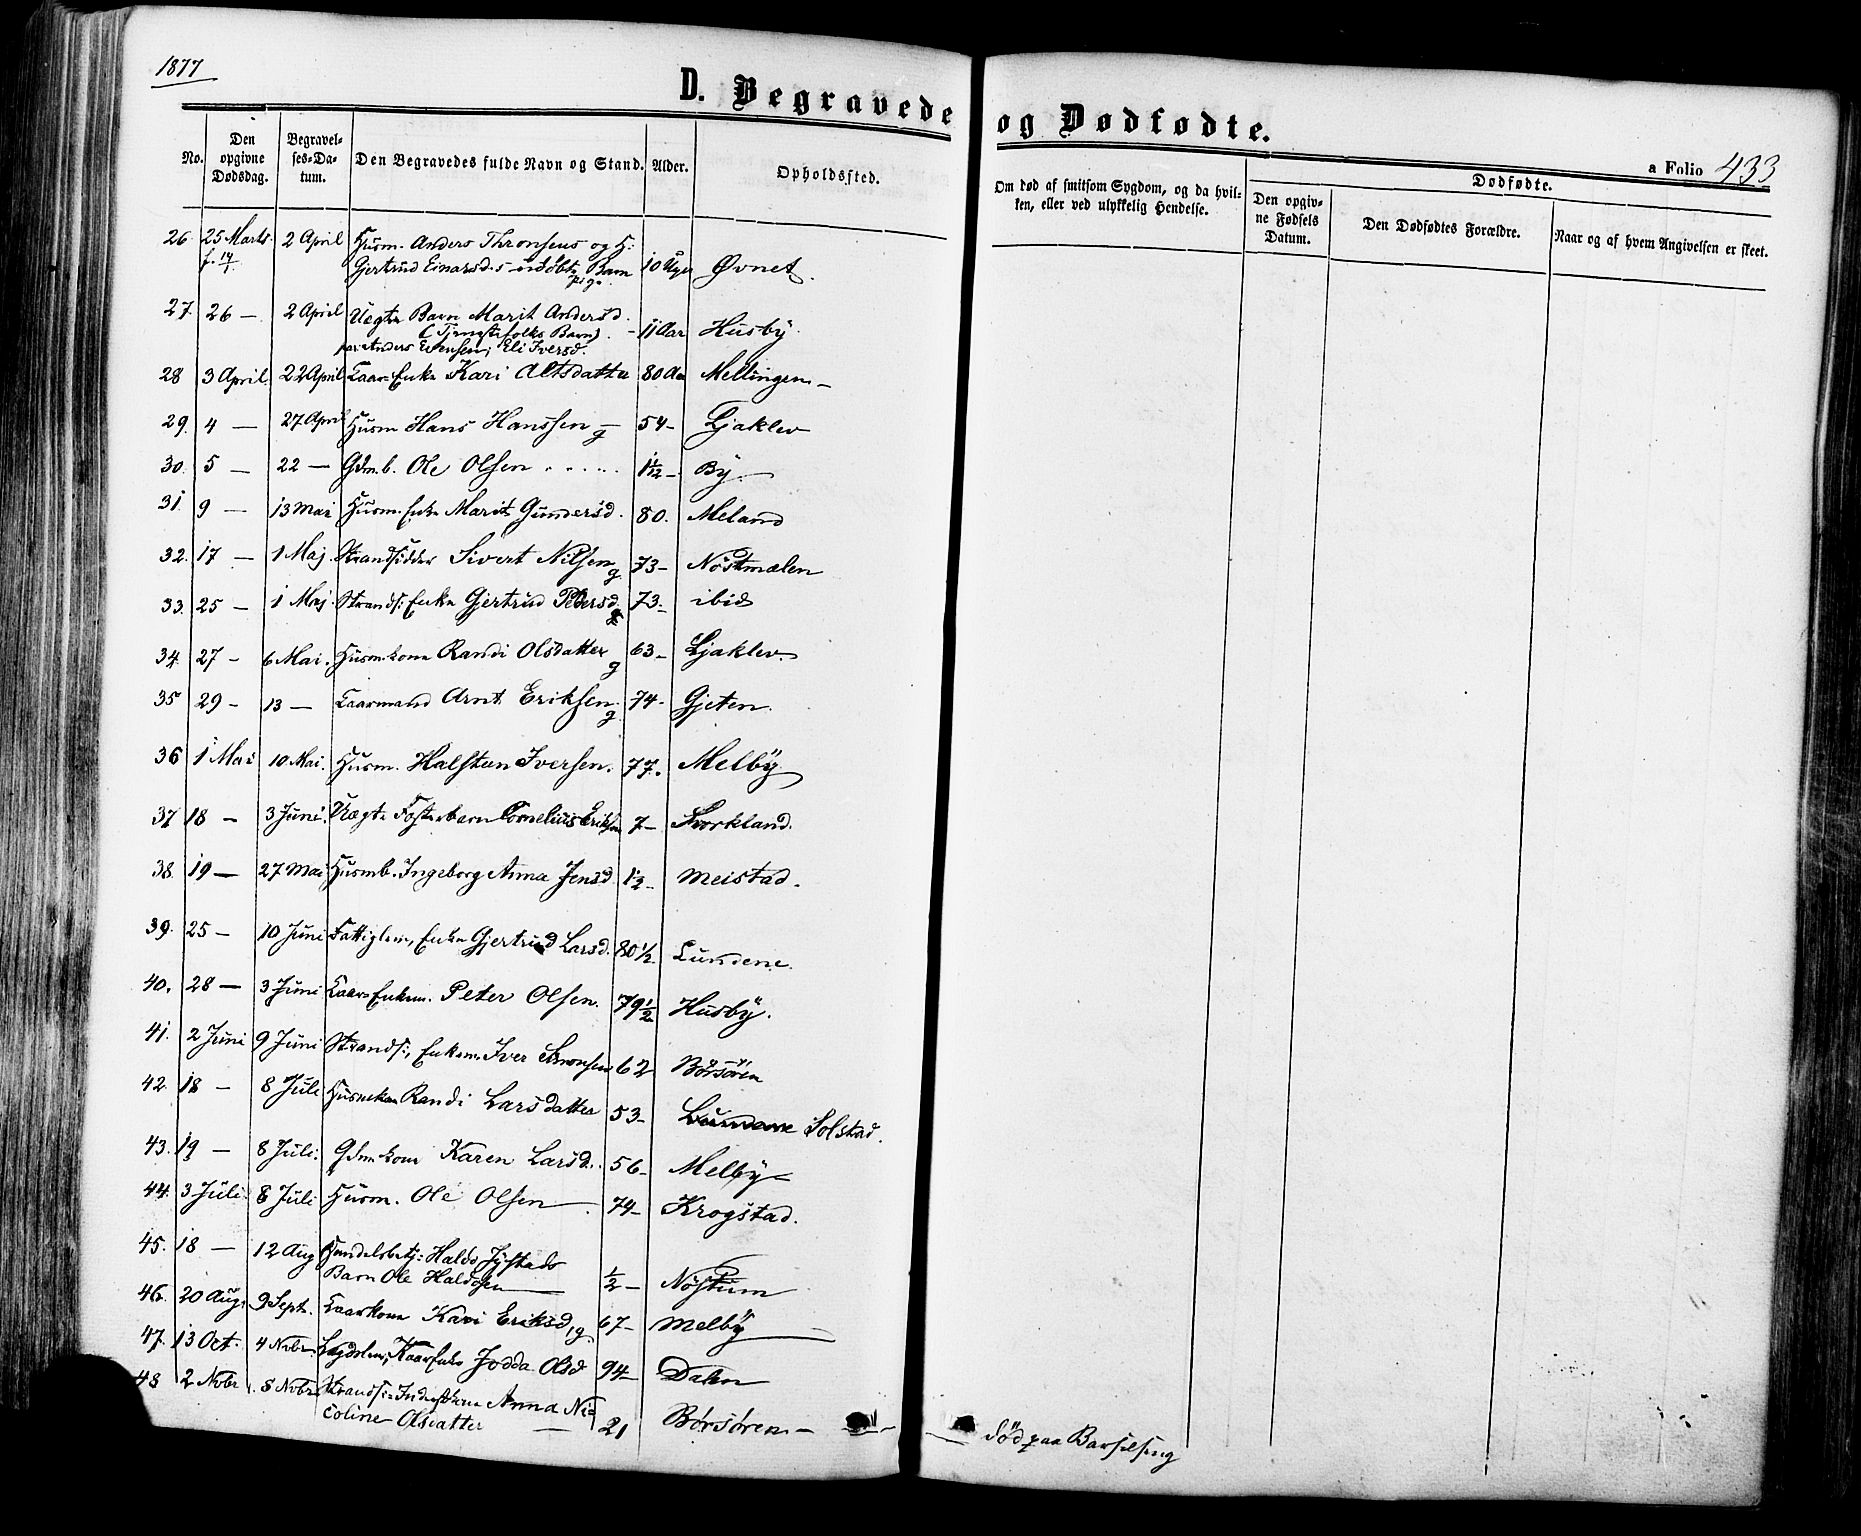 1877
D. Begravede og Dødfødte.
a Folio 433
No.
Den opgivne Dødsdag.
Begravel-ses-Da-tum.
Den Begravedes fulde Navn og Stand.
Alder.
Opholdssted.
Om død af smitsom Sygdom, og da hvil-ken, eller ved ulykkelig Hendelse.
Dødfødte.
Den opgiv-ne Fødsels Datum.
Den Dødfødtes Forældre.
Naar og af hvem Angivelsen er skeet.
26. 25 Marts. 2 April Husm. Anders Thronsens og H:
f. 14/1. Gjertrud Einarsd.s udøbte Barn 10 Uger Øvnet.
pige
27. 26 — 2 April Uægte Barn Marit Andersd.
(Tjenestefolks Barn) - 11 Aar Husby.
Anders Evensen, Eli Iversd.
28 3 April. 22 April Kaar-Enke Kari Altsdatter 80 Aar Mellingen —
29. 4 — 27 April Husm Hans Hanssen — g 54 - Ljaklev
30. 5 — 22 — Gdm. b. Ole Olsen . . . . . 1 1/12 - By. —
31. 9 — 13 Mai Husm. Enke Marit Gundersd. 80. Meland
32. 17 — 1 Maj. Strandsidder Sivert Nilsen g 73 - Nöstmælen
33. 25 — 1 Maj. Strands: Enke Gjertrud Pedersd. g 73 - ibid
34. 27 - 6 Mai. Husm.kone Randi Olsdatter g 63 - Ljaklev.
35 29 - 13 — Kaarmand Arnt Eriksen. g 74 - Gjeten.
36 1 Mai 10 Mai. Husm. Halsten Iversen. 77. Melby
37 18 - 3 Juni. Uægte Fosterbarn Cornelius Eriksen 7 - Storkland.
38. 19 — 27 Mai Husmb. Ingeborg Anna Jensd 1 1/2 - Meistad.
39. 25 - 10 Juni Fattiglem, Enke Gjertrud Larsd. 80 1/2 Lundene.
40. 28 — 3 Juni Kaar-Enkem. Peter Olsen. 79 1/2 Husby.
41. 2 Juni 9 Juni Strands:, Enkem. Iver Aronsen 62 Börsören
42. 18 - 8 Juli Husmkone Randi Larsdatter 53 - Lundene Solstad.
43. 19 — 8 Juli. Gdm.kone Karen Larsd. 56 - Melby -
44. 3 Juli 8 Juli Husm. Ole Olsen — . 74 - Krogstad.
45. 18 — 12 Aug Handelsbetj: Haldo Jystads
Barn Ole Haldosen — 1/2 - Nöstum
46. 20 Aug. 9 Sept. Kaarkone Kari Eriksd, g. 67 - Melby —
47. 13 Oct. 4 Nvbr. Lægdslem, Kaarenke Jodda Olsd 94 - Dalen
48 2 Nvbr 8 Nvbr Strands:-Inderstkone Anna Ni=
coline Olsdatter — 21 Börsören - — död paa Barselseng